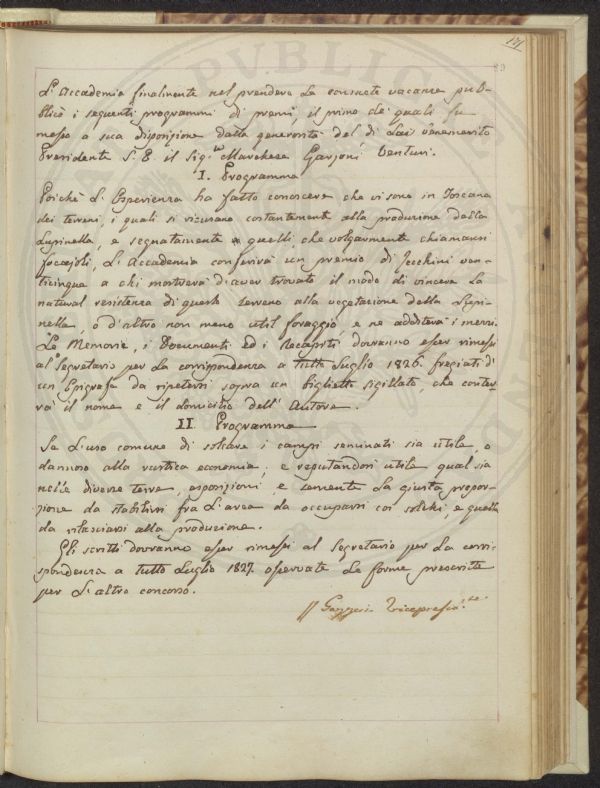 171
89
L'Accademia finalmente nel prendere le consuete vacanze pub-
blicò i seguenti programmi di premi, il primo de' quali fu
messo a sua disposizione dalla generosità del di Lei benemerito
Presidente S. E. il Sig.re Marchese Garzoni Venturi.
I. Programma
Poichè L'Esperienza ha fatto conoscere che vi sono in Toscana
dei terreni, i quali si ricusano costantemente alla produzione della
Lupinella, e segnatamente quelli, che volgarmente chiamansi
focajoli, L'Accademia conferirà un premio di Zecchini ven-
ticinque a chi mostrerà d'aver trovato il modo di vincere la
natural resistenza di questo terreno alla vegetazione della Lupi-
nella, o d'altro non meno util foraggio, e ne additerà i mezzi.
Le Memorie, i Documenti ed i Recapiti dovranno esser rimessi
al Segretario per la corrispondenza a tutto Luglio 1826. fregiati d'
un Epigrafe da ripetersi sopra un biglietto sigillato, che conter-
rà il nome e il domicilio dell'Autore.
II Programma
Se L'uso comune di solcare i campi seminati sia utile, o
dannoso alla rustica economia, e reputandosi utile qual sia
nelle diverse terre, esposizioni, e semente la giusta propor-
zione da stabilirsi fra L'area da occuparsi coi solchi, e quella
da rilasciarsi alla produzione.
Gli scritti dovranno esser rimessi al Segretario per la corri-
spondenza a tutto Luglio 1827. osservate le forme prescritte
per L'altro concorso.
Gazzeri Vicepresid.te